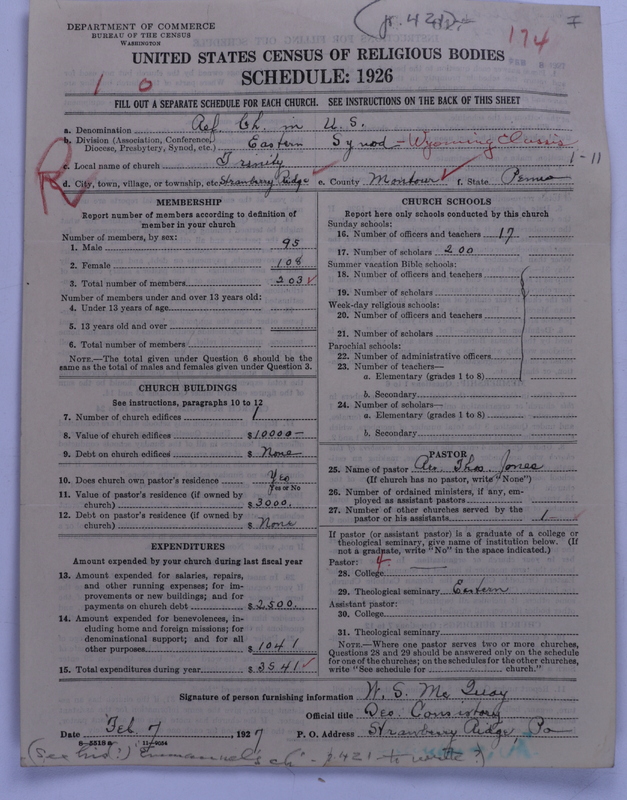 (Jr. 421
I
174
DEPARTMENT OF COMMERCE
BUREAU OF THE CENSUS
WASHINGTON
UNITED STATES CENSUS OF RELIGIOUS BODIES
SCHEDULE: 1926
1 0
FILL OUT A SEPARATE SCHEDULE FOR EACH CHURCH. SEE INSTRUCTIONS ON THE BACK OF THIS SHEET
a. Denomination Ref. Ch. in U.S.
b. Division (Association, Conference, Diocese, Presbytery, Synod, etc.) Eastern Synod - Wyoming Classis
c. Local name of church Trinity
1-11
R
d. City, town, village, or township, etc. Strawberry Ridge e. County Montour f. State Penna
MEMBERSHIP
Report number of members according to definition of
member in your church
Number of members, by sex:
1. Male 95
2. Female 108
3. Total number of members 203
Number of members under and over 13 years old:
4. Under 13 years of age
5. 13 years old and over
6. Total number of members
NOTE.—The total given under Question 6 should be the
same as the total of males and females given under Question 3.
CHURCH BUILDINGS
See instructions, paragraphs 10 to 12
7. Number of church edifices 1
8. Value of church edifices $10000-
9. Debt on church edifices $ None
10. Does church own pastor's residence? Yes
Yes or No
11. Value of pastor's residence (if owned by
church) $3000.
12. Debt on pastor's residence (if owned by
church) $ None
EXPENDITURES
Amount expended by your church during last fiscal year
13. Amount expended for salaries, repairs,
and other running expenses; for im-
provements or new buildings; and for
payments on church debt $2,500.
14. Amount expended for benevolences, in-
cluding home and foreign missions; for
denominational support; and for all
other purposes $1041
15. Total expenditures during year $3541
CHURCH SCHOOLS
Report here only schools conducted by this church
Sunday schools:
16. Number of officers and teachers 17
17. Number of scholars 200
Summer vacation Bible schools:
18. Number of officers and teachers
19. Number of scholars
Week-day religious schools:
20. Number of officers and teachers
21. Number of scholars
Parochial schools:
22. Number of administrative officers
23. Number of teachers—
a. Elementary (grades 1 to 8)
b. Secondary
24. Number of scholars—
a. Elementary (grades 1 to 8)
b. Secondary
PASTOR
25. Name of pastor Rev. Thos. Jones
(If church has no pastor, write "None")
26. Number of ordained ministers, if any, em-
ployed as assistant pastors
27. Number of other churches served by the
pastor or his assistants 1
If pastor (or assistant pastor) is a graduate of a college or
theological seminary, give name of institution below. (If
not a graduate, write "No" in the space indicated.)
Pastor: 4.
28. College
29. Theological seminary Eastern
Assistant pastor:
30. College
31. Theological seminary
NOTE.—Where one pastor serves two or more churches,
Questions 28 and 29 should be answered only on the schedule
for one of the churches; on the schedules for the other churches,
write "See schedule for church."
Signature of person furnishing information W. S. Mc Quay
Official title Sec. Consistory
Date Feb. 7, 1927 P. O. Address Strawberry Ridge, Pa
8-5518a 11-9034
421 to write?)